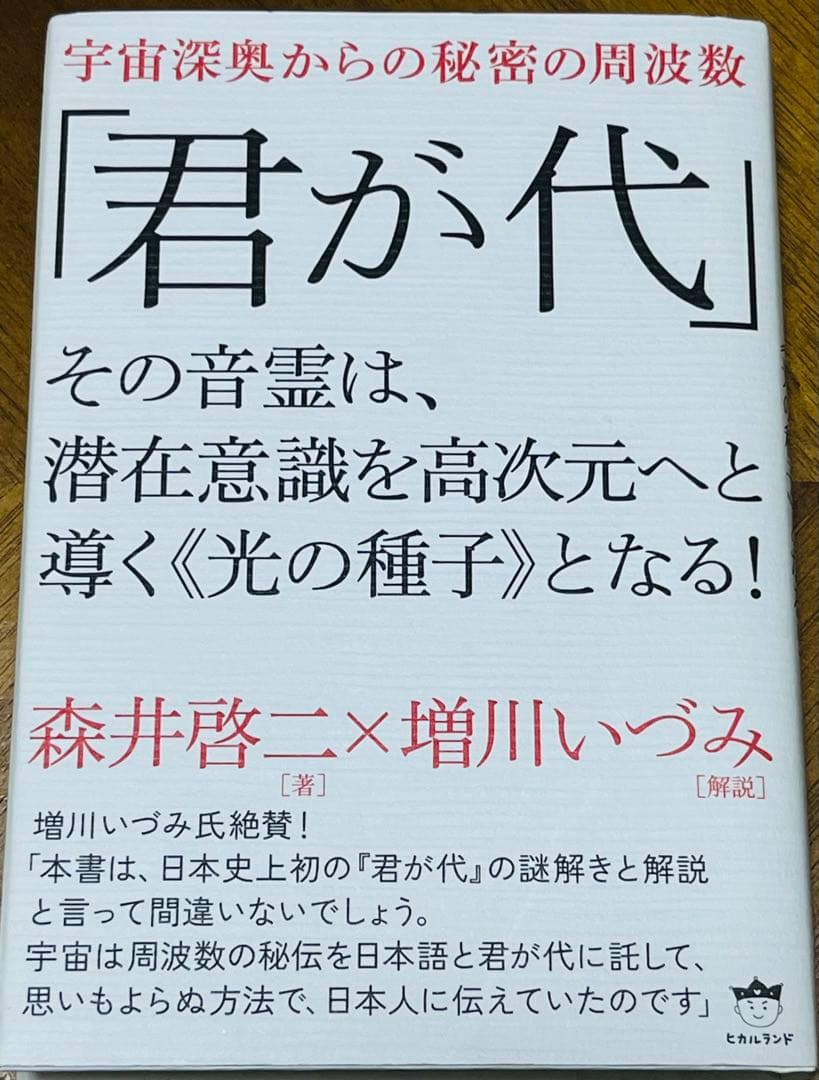 宇宙深奥からの秘密の周波数
「君が代」
その音霊は、
潜在意識を高次元へと
導く《光の種子》となる!
森井啓二×増川いづみ
[著] [解説]
増川いづみ氏絶賛!
「本書は、日本史上初の『君が代』の謎解きと解説
と言って間違いないでしょう。
宇宙は周波数の秘伝を日本語と君が代に託して、
思いもよらぬ方法で、日本人に伝えていたのです」
ヒカルランド